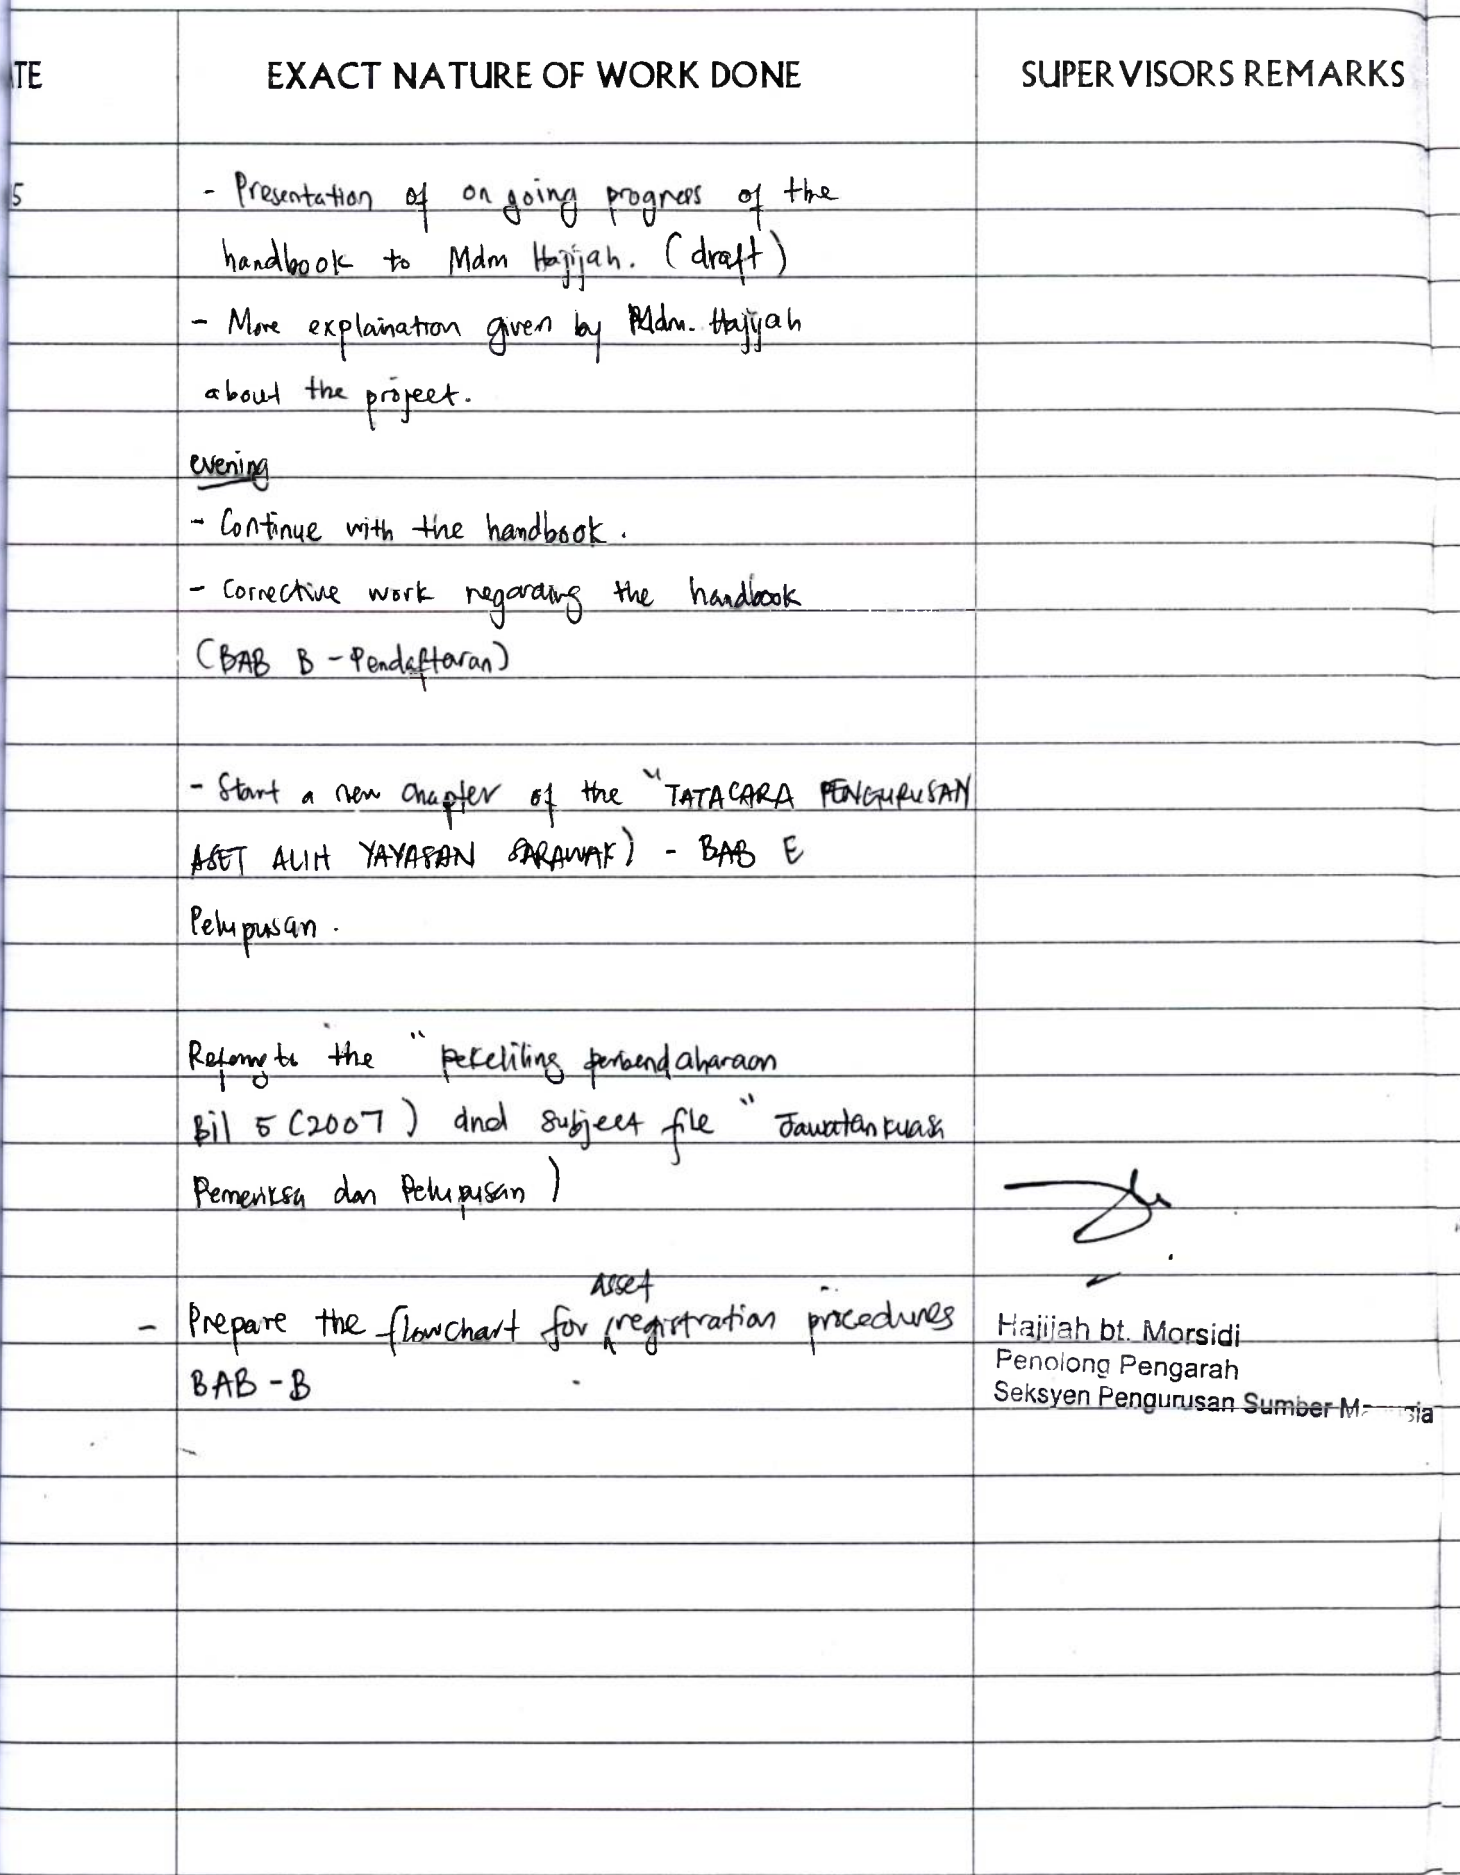 TE EXACT NATURE OF WORK DONE SUPERVISORS REMARKS
5 - Presentation of on going progress of the
handbook to Mdm Hajijah. (draft)
- More explaination given by Mdm. Hajijah
about the project.
evening
- Continue with the handbook.
- Corrective work regarding the handbook
(BAB B - Pendaftaran)
- Start a new chapter of the "TATACARA PENGURUSAN
ASET ALIH YAYASAN SARAWAK) - BAB E
Pelupusan.
Refering to the "pekeliling perbendaharaan
Bil 5 (2007) and subject file "Jawatankuasa
Pemeriksa dan Pelupusan)
asset
- Prepare the flowchart for registration procedures
BAB - B
Hajijah bt. Morsidi
Penolong Pengarah
Seksyen Pengurusan Sumber